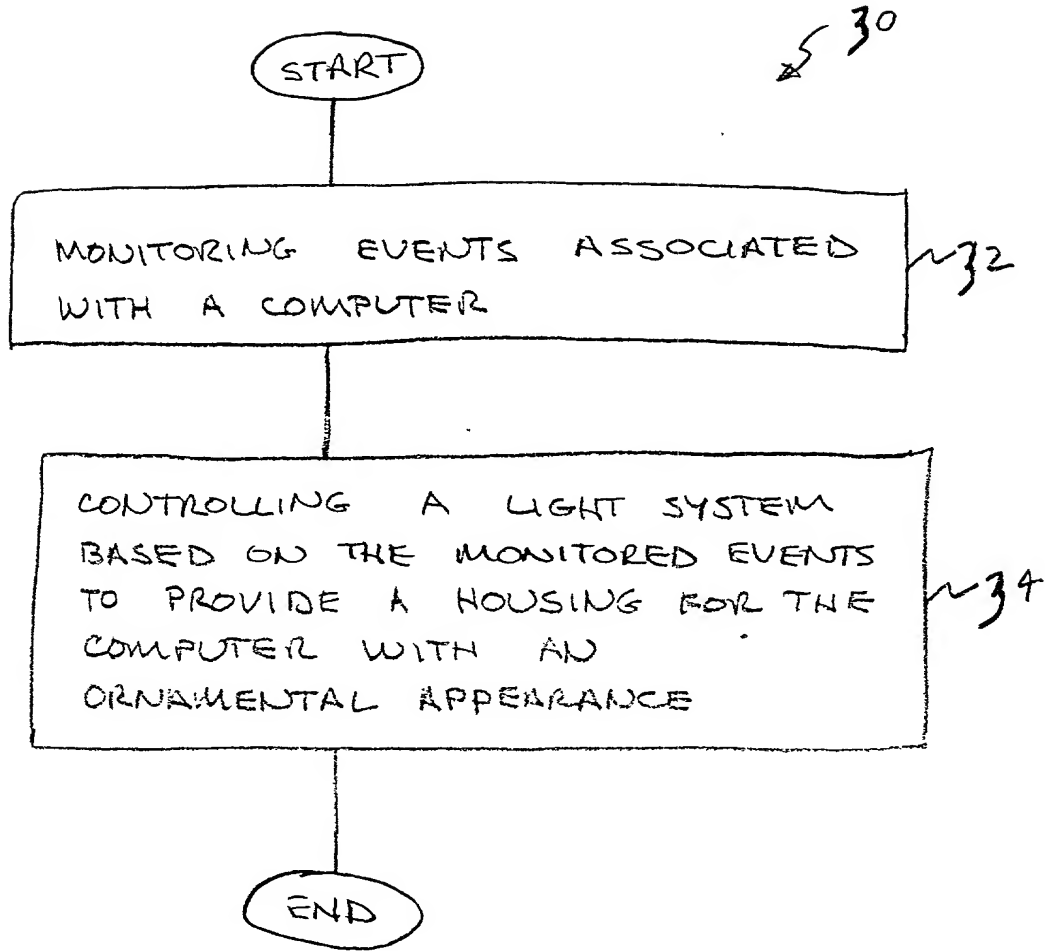 30
START
MONITORING EVENTS ASSOCIATED
WITH A COMPUTER
32
CONTROLLING A LIGHT SYSTEM
BASED ON THE MONITORED EVENTS
TO PROVIDE A HOUSING FOR THE
COMPUTER WITH AN
ORNAMENTAL APPEARANCE
34
END